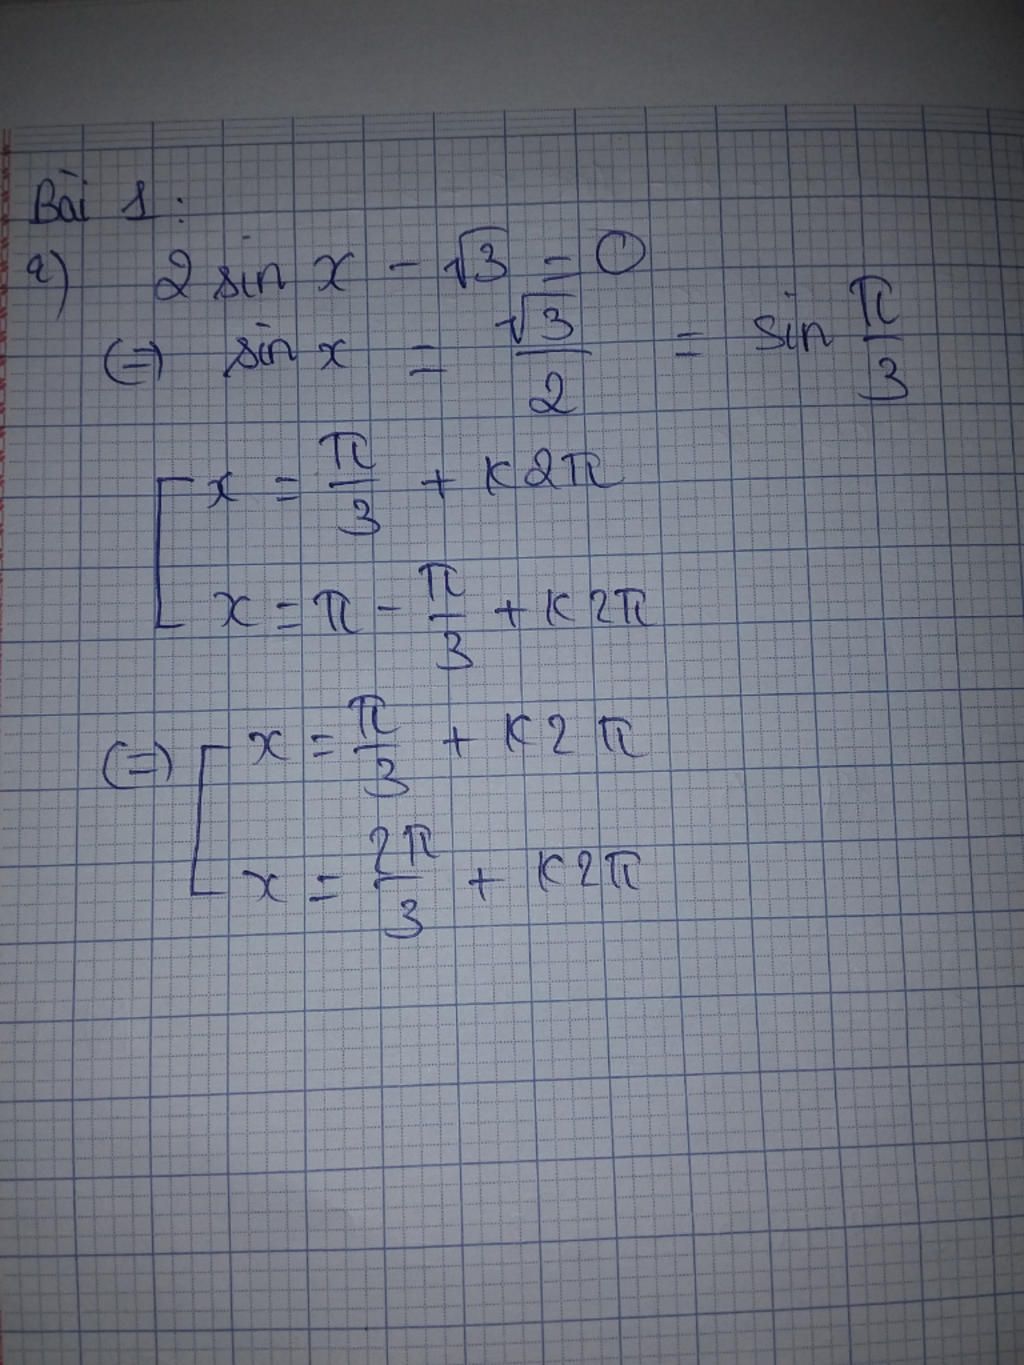 Bài 1:
a) 2 sin x - √3 = 0
(=) sin x = √3/2 = sin π/3
[ x = π/3 + K2π
x = π - π/3 + K2π
(=) [ x = π/3 + K2π
x = 2π/3 + K2π